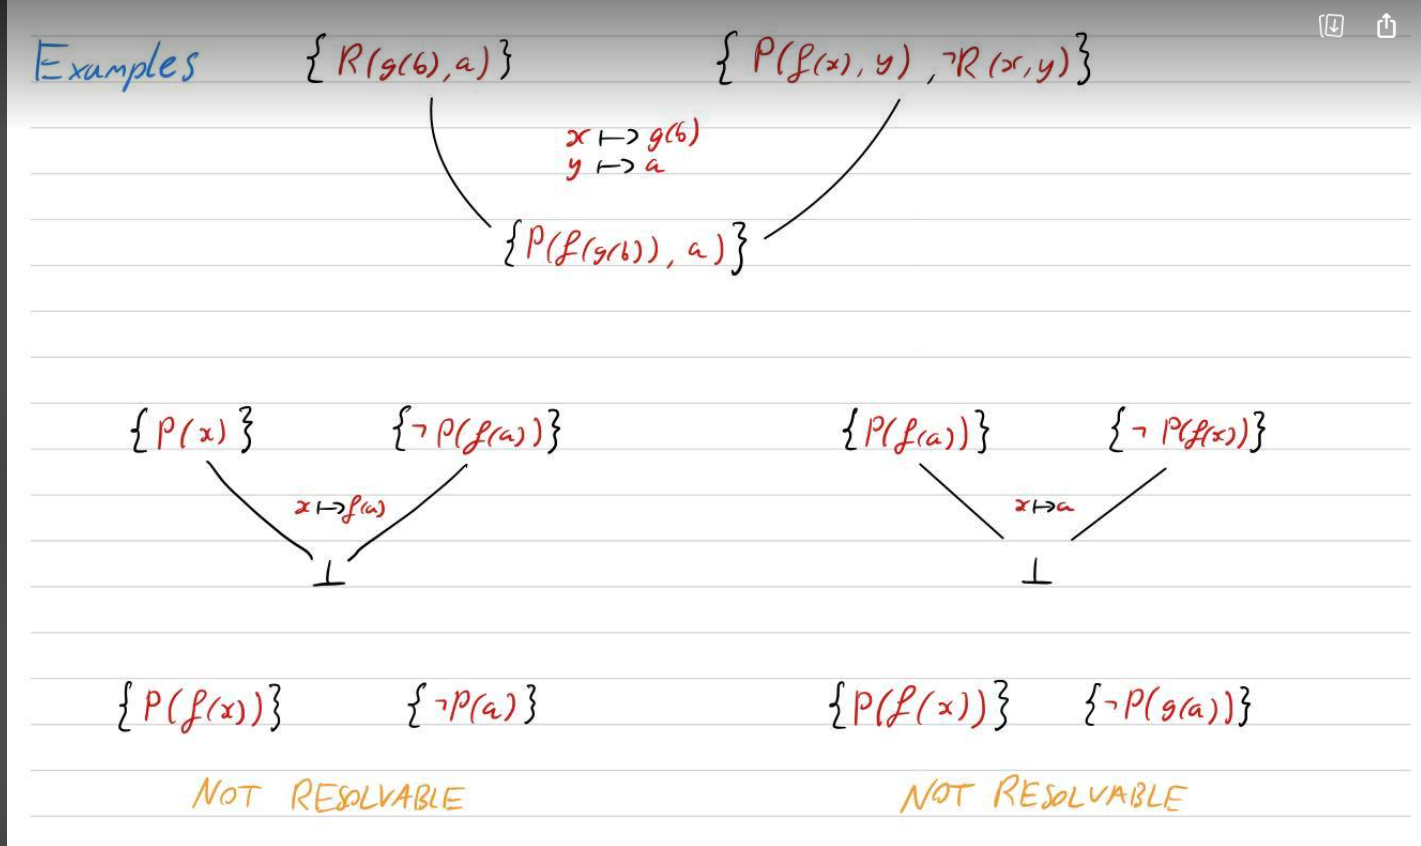 Examples {R(g(b),a)} {P(f(x),y),¬R(x,y)}
x ↦ g(b)
y ↦ a
{P(f(g(b)),a)}
{P(x)} {¬P(f(a))} {P(f(a))} {¬P(f(x))}
x↦f(a) x↦a
⊥ ⊥
{P(f(x))} {¬P(a)} {P(f(x))} {¬P(g(a))}
NOT RESOLVABLE NOT RESOLVABLE